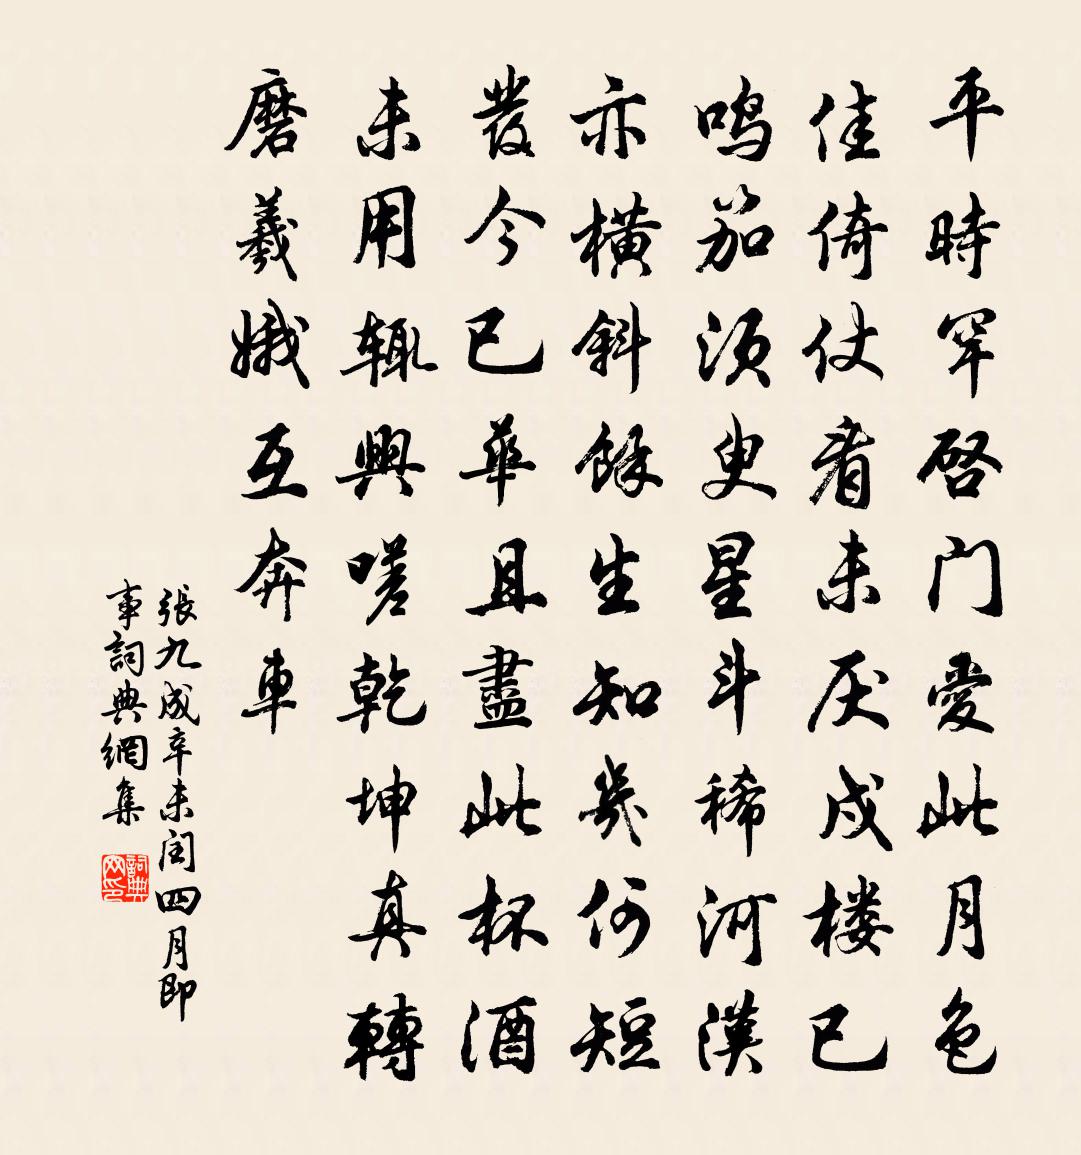 平時罕啓门愛此月色
佳倚仗看未厌戍楼已
鸣笳须臾星斗稀河漢
亦横斜餘生知幾何短
發今已華且盡此杯酒
未用輙興嗟乾坤真轉
磨羲娥互奔車
張九成辛未闰四月即
事詞典網集
詞典
网印